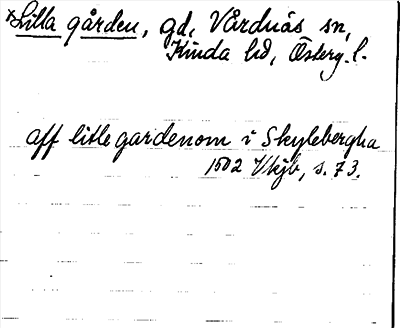 ×Lilla gården, gd, Vårdnäs sn,
Kinda hd, Österg. l.
aff litle gardenom i Skylebergha
1502 Vkjb, s. 73.